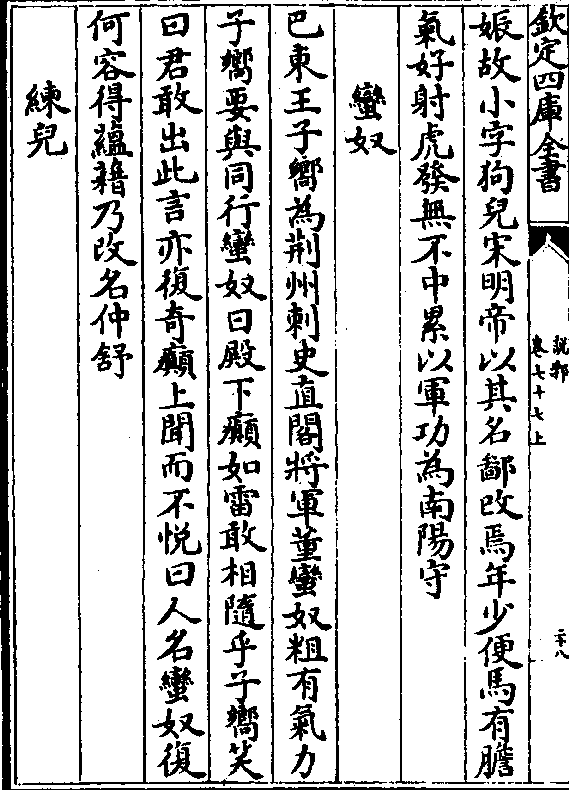 欽定四庫全書
說郛
卷七十七上
二十八
娠故小字狗兒宋明帝以其名鄙改焉年少便馬有膽
氣好射虎發無不中累以軍功為南陽守
蠻奴
巴東王子嚮為荆州刺史直閣將軍董蠻奴粗有氣力
子嚮要與同行蠻奴曰殿下癲如雷敢相隨乎子嚮笑
曰君敢出此言亦復奇癲上聞而不悅曰人名蠻奴復
何容得蘊藉乃改名仲舒
練兒